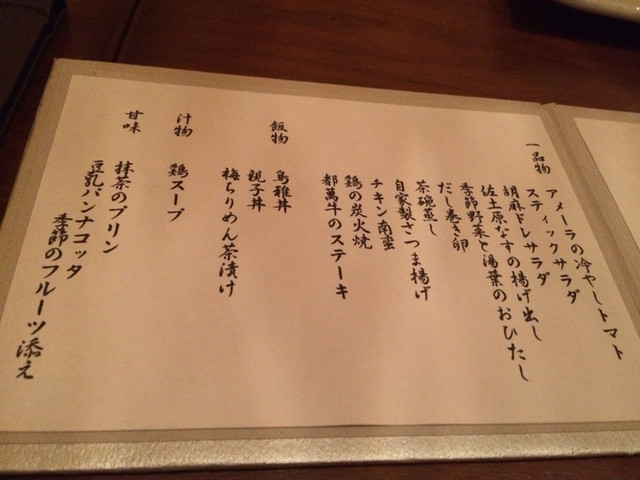 一品物
アメーラの冷やしトマト
スティックサラダ
胡麻ドレサラダ
佐土原なすの揚げ出し
季節野菜と湯葉のおひたし
だし巻き卵
茶碗蒸し
自家製さつま揚げ
チキン南蛮
鶏の炭火焼
都萬牛のステーキ
飯物
烏雅丼
親子丼
梅ちりめん茶漬け
汁物
鶏スープ
甘味
抹茶のプリン
豆乳パンナコッタ
季節のフルーツ添え